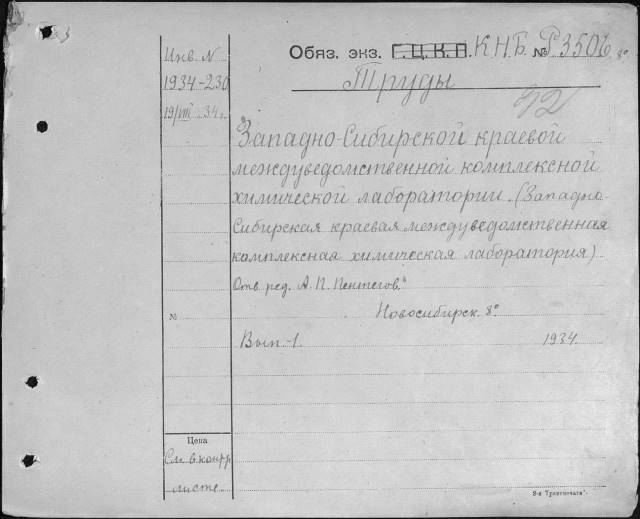 Инв. N
1934-230
19/VIII 34г.
Обяз. экз. Г.Ц.К.П. К.Н.Б. № Р3506 8°
Труды
92
Западно-Сибирской краевой
междуведомственной комплексной
химической лаборатории. (Западно-
Сибирская краевая междуведомственная
комплексная химическая лаборатория)
Отв. ред. А. П. Пентегов.
Новосибирск. 8°
№
Вып. 1. 1934.
Цена
См. в контр
листе.
8-я "Транспечати".